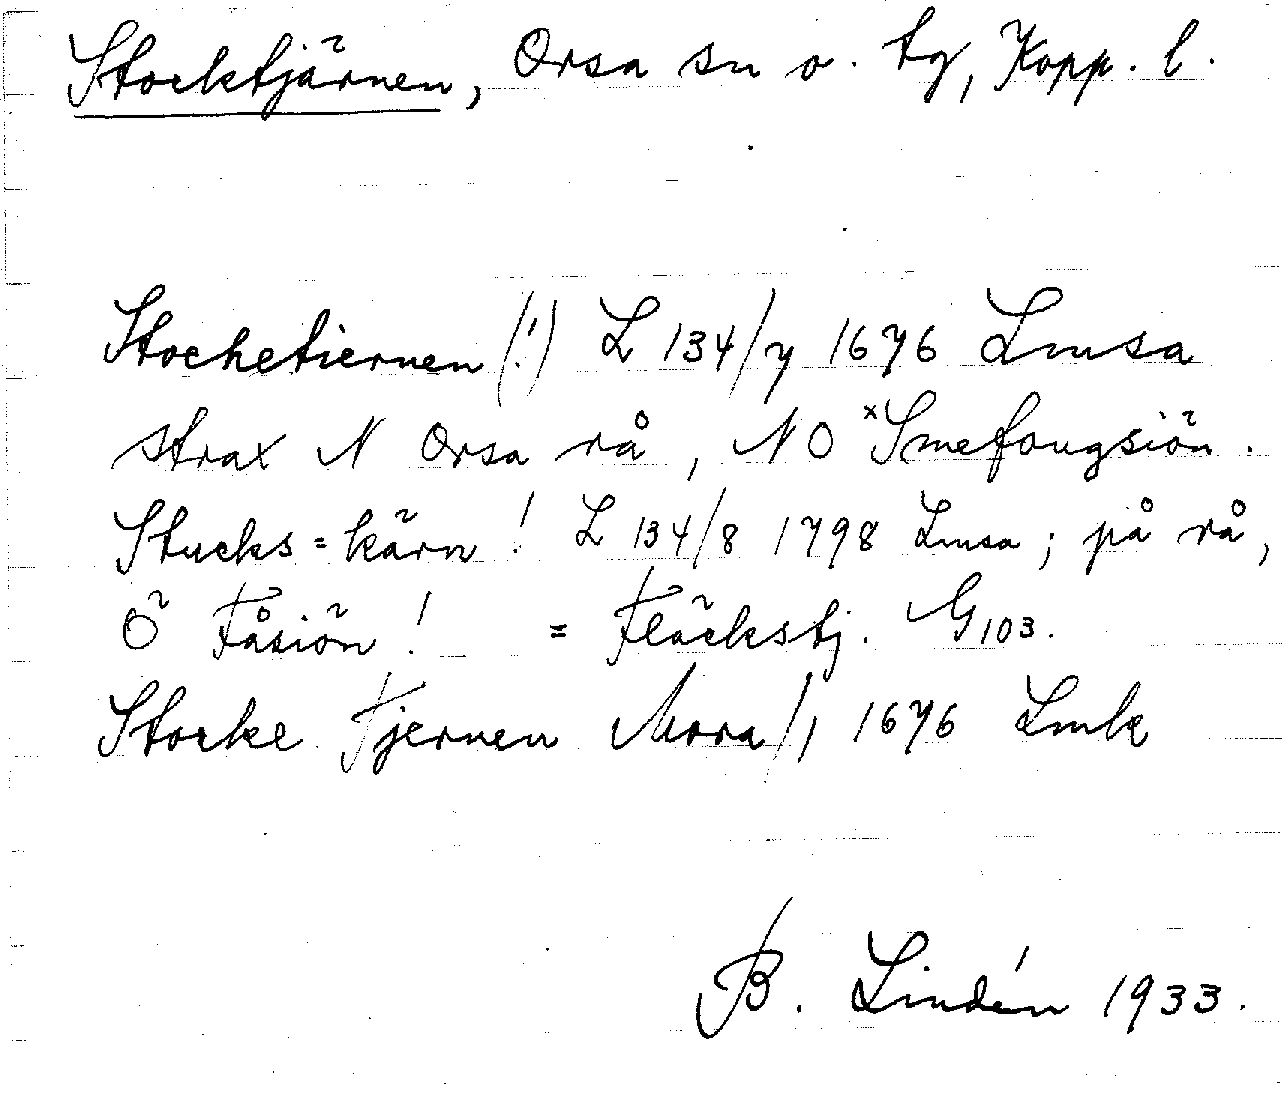 Stocktjärnen, Orsa sn o. tg, Kopp. l.
Stochetiernen (!) L 134/7 1676 Lmsa
strax N Orsa rå, NO xSmefougsiön.
Stucks=kärn! L 134/8 1798 Lmsa; på rå,
Ö Fåsiön! = Fläckstj. G103.
Stocke Tjernen Mora/1 1676 Lmk
B. Lindén 1933.